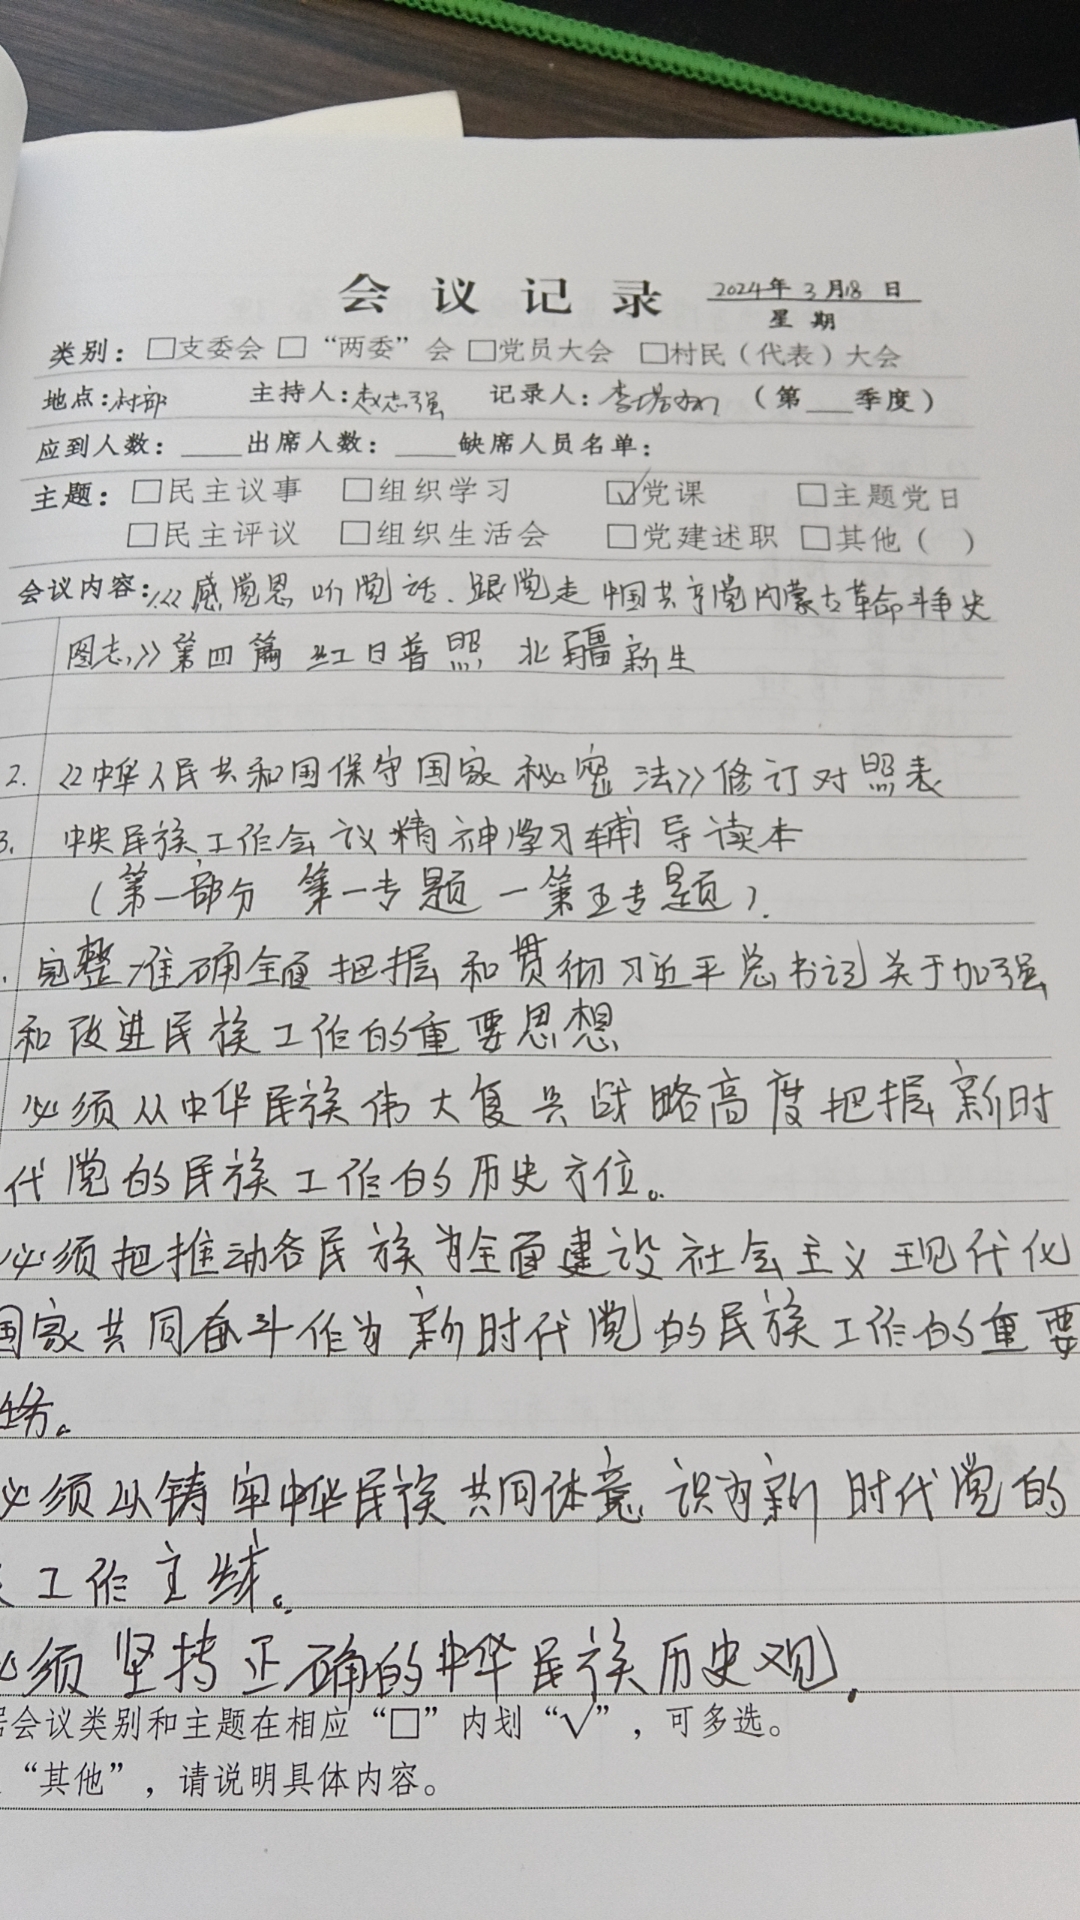 会议记录 2024年3月18日
星期
类别：□支委会 □“两委”会 □党员大会 □村民（代表）大会
地点：村部 主持人：赵志强 记录人：李 （第___季度）
应到人数：____出席人数：____缺席人员名单：
主题：□民主议事 □组织学习 ☑党课 □主题党日
□民主评议 □组织生活会 □党建述职 □其他（ ）
会议内容：1.《感党恩 听党话、跟党走 中国共产党内蒙古革命斗争史
图志》第四篇 红日普照 北疆新生
2. 《中华人民共和国保守国家秘密法》修订对照表
3. 中央民族工作会议精神学习辅导读本
（第一部分 第一专题—第五专题）.
. 完整准确全面把握和贯彻习近平总书记关于加强
和改进民族工作的重要思想
必须从中华民族伟大复兴战略高度把握新时
代党的民族工作的历史方位。
必须把推动各民族为全面建设社会主义现代化
国家共同奋斗作为新时代党的民族工作的重要
任务。
必须以铸牢中华民族共同体意识为新时代党的
工作主线。
必须坚持正确的中华民族历史观.
据会议类别和主题在相应“□”内划“√”，可多选。
“其他”，请说明具体内容。